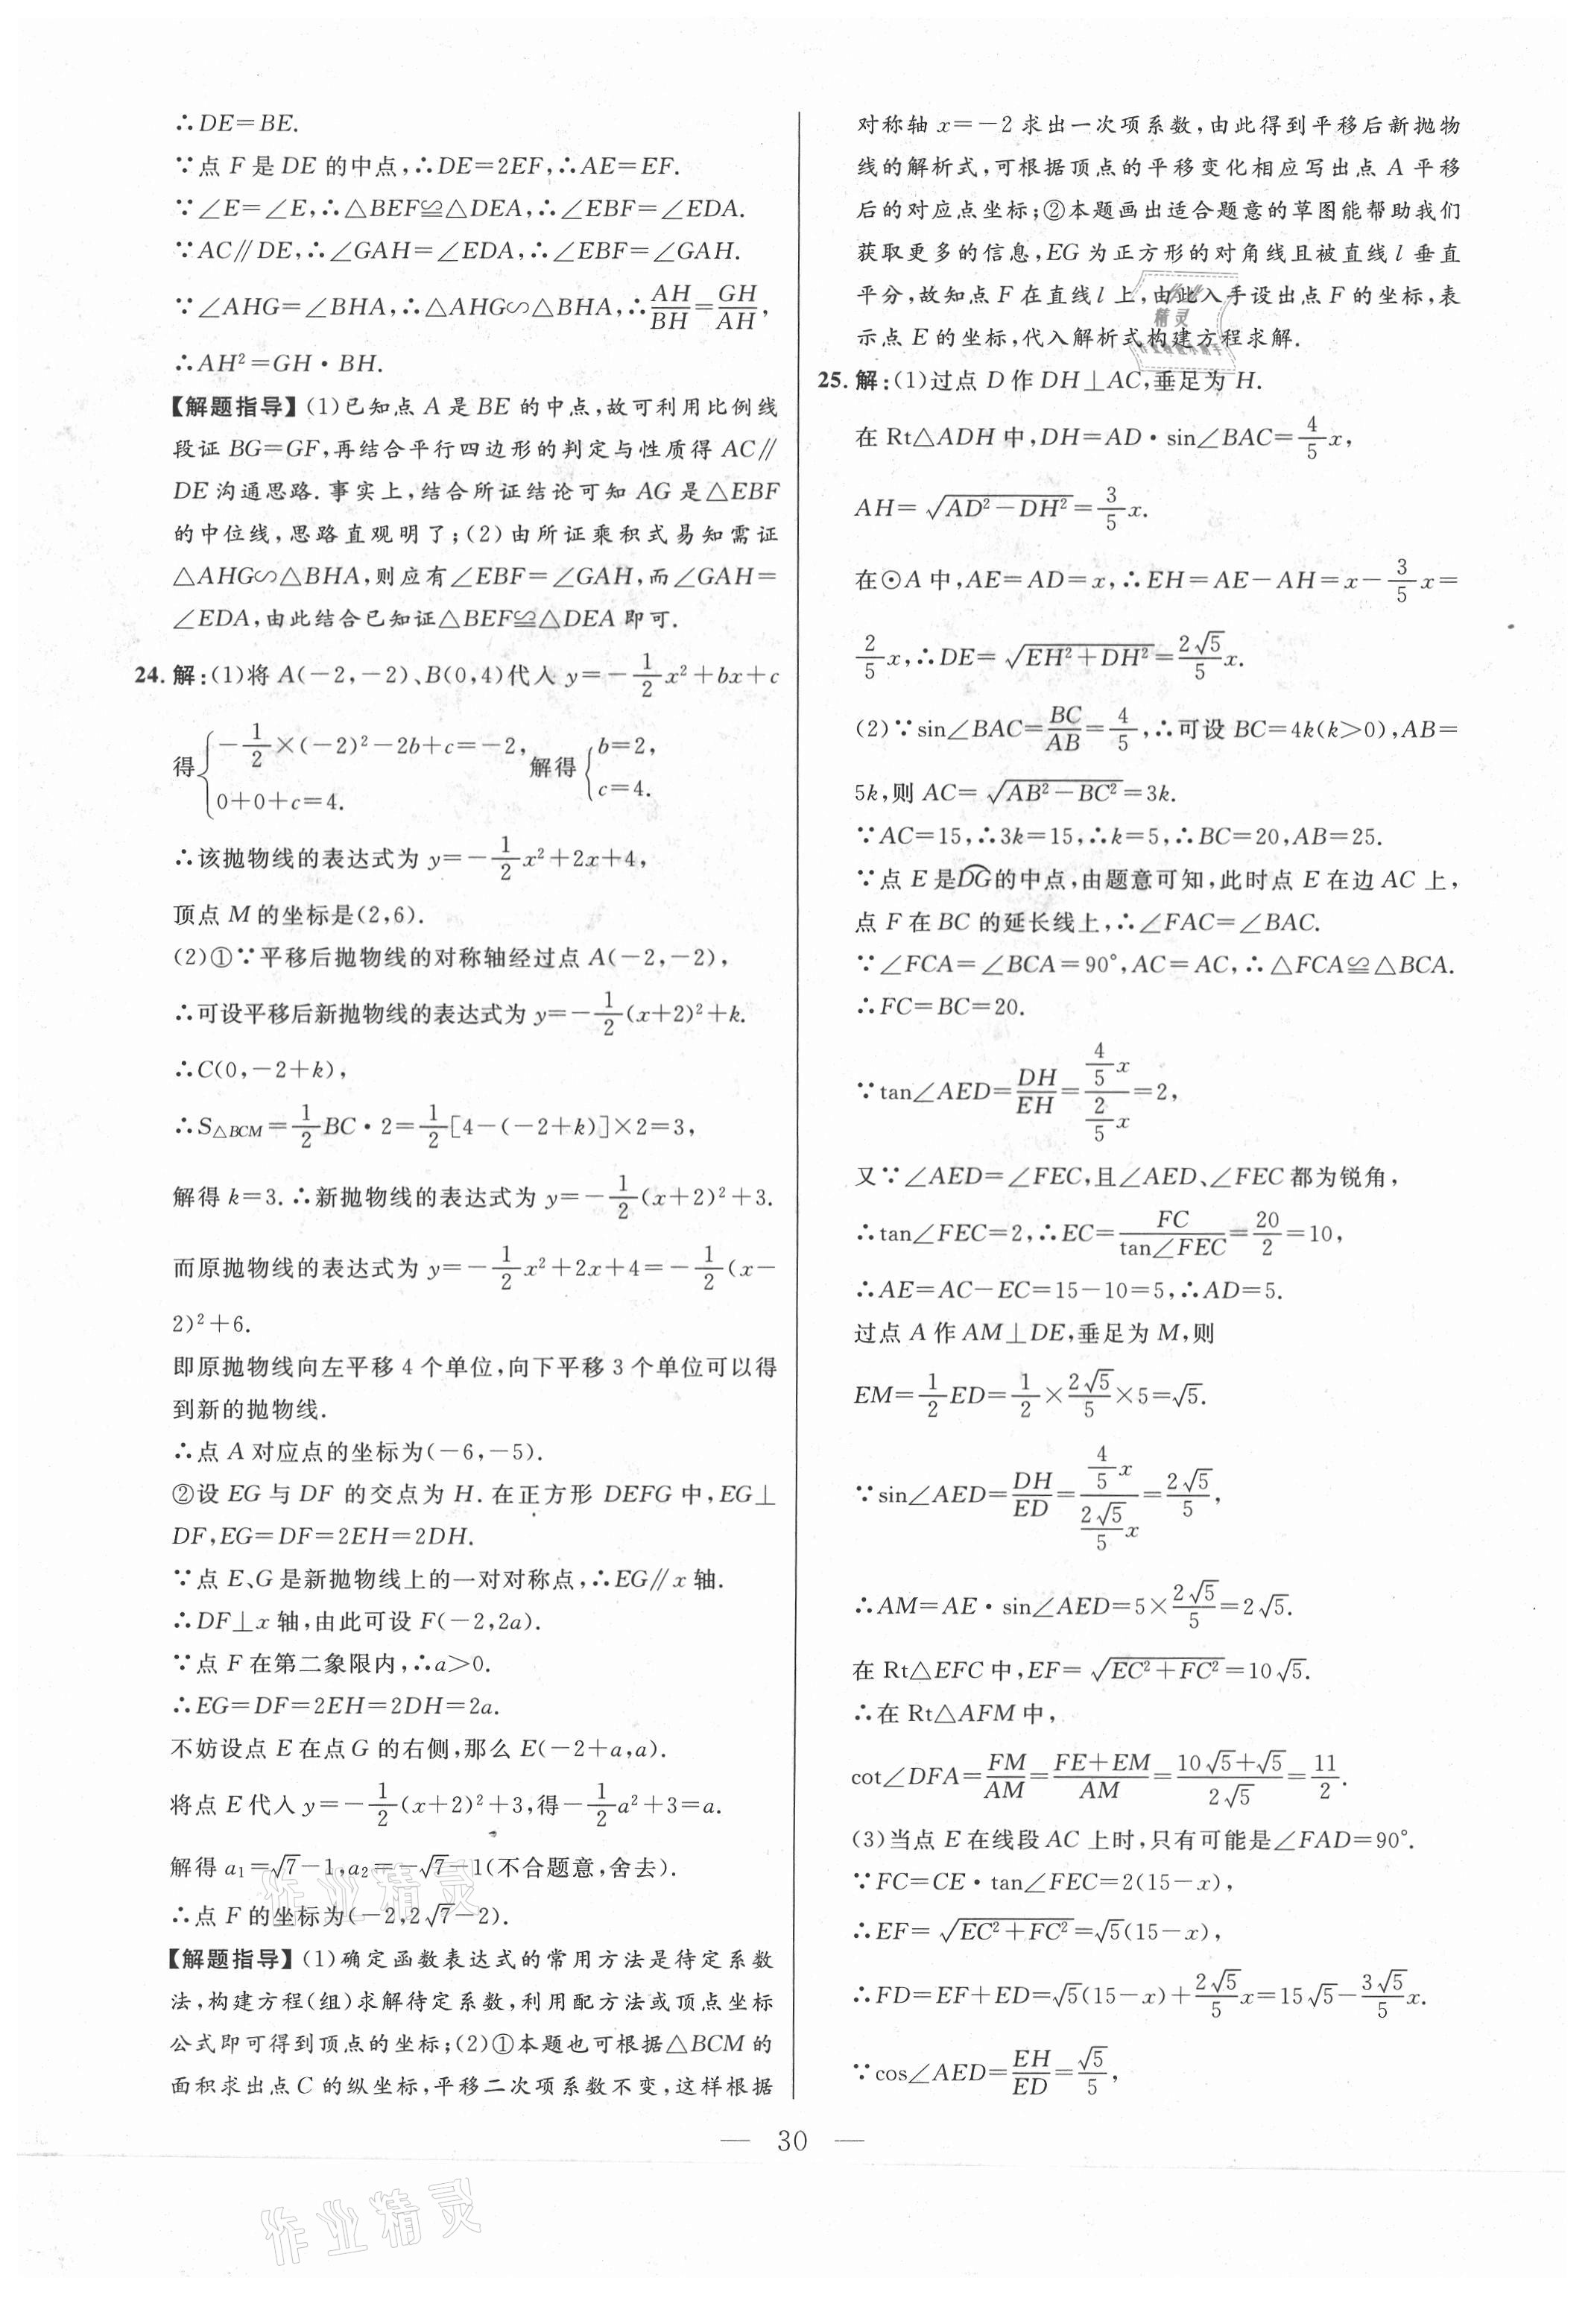 ∴DE=BE.
∵点 F 是 DE 的中点,∴DE=2EF,∴AE=EF.
∵∠E=∠E,∴△BEF≌△DEA,∴∠EBF=∠EDA.
∵AC∥DE,∴∠GAH=∠EDA,∴∠EBF=∠GAH.
∵∠AHG=∠BHA,∴△AHG∽△BHA,∴AH/BH=GH/AH,
∴AH²=GH·BH.
【解题指导】(1)已知点 A 是 BE 的中点,故可利用比例线
段证 BG=GF,再结合平行四边形的判定与性质得 AC∥
DE 沟通思路.事实上,结合所证结论可知 AG 是△EBF
的中位线,思路直观明了;(2)由所证乘积式易知需证
△AHG∽△BHA,则应有∠EBF=∠GAH,而∠GAH=
∠EDA,由此结合已知证△BEF≌△DEA 即可.
24.解:(1)将 A(-2,-2)、B(0,4)代入 y=-1/2x²+bx+c
得{-1/2×(-2)²-2b+c=-2, 0+0+c=4. 解得{b=2, c=4.
∴该抛物线的表达式为 y=-1/2x²+2x+4,
顶点 M 的坐标是(2,6).
(2)①∵平移后抛物线的对称轴经过点 A(-2,-2),
∴可设平移后新抛物线的表达式为 y=-1/2(x+2)²+k.
∴C(0,-2+k),
∴S△BCM=1/2BC·2=1/2[4-(-2+k)]×2=3,
解得 k=3.∴新抛物线的表达式为 y=-1/2(x+2)²+3.
而原抛物线的表达式为 y=-1/2x²+2x+4=-1/2(x-
2)²+6.
即原抛物线向左平移 4 个单位,向下平移 3 个单位可以得
到新的抛物线.
∴点 A 对应点的坐标为(-6,-5).
②设 EG 与 DF 的交点为 H.在正方形 DEFG 中,EG⊥
DF,EG=DF=2EH=2DH.
∵点 E、G 是新抛物线上的一对对称点,∴EG∥x 轴.
∴DF⊥x 轴,由此可设 F(-2,2a).
∵点 F 在第二象限内,∴a>0.
∴EG=DF=2EH=2DH=2a.
不妨设点 E 在点 G 的右侧,那么 E(-2+a,a).
将点 E 代入 y=-1/2(x+2)²+3,得-1/2a²+3=a.
解得 a₁=√7-1,a₂=-√7-1(不合题意,舍去).
∴点 F 的坐标为(-2,2√7-2).
【解题指导】(1)确定函数表达式的常用方法是待定系数
法,构建方程(组)求解待定系数,利用配方法或顶点坐标
公式即可得到顶点的坐标;(2)①本题也可根据△BCM 的
面积求出点 C 的纵坐标,平移二次项系数不变,这样根据
对称轴 x=-2 求出一次项系数,由此得到平移后新抛物
线的解析式,可根据顶点的平移变化相应写出点 A 平移
后的对应点坐标;②本题画出适合题意的草图能帮助我们
获取更多的信息,EG 为正方形的对角线且被直线 l 垂直
平分,故知点 F 在直线 l 上,由此入手设出点 F 的坐标,表
示点 E 的坐标,代入解析式构建方程求解.
25.解:(1)过点 D 作 DH⊥AC,垂足为 H.
在 Rt△ADH 中,DH=AD·sin∠BAC=4/5x,
AH=√(AD²-DH²)=3/5x.
在⊙A 中,AE=AD=x,∴EH=AE-AH=x-3/5x=
2/5x,∴DE=√(EH²+DH²)=2√5/5x.
(2)∵sin∠BAC=BC/AB=4/5,∴可设 BC=4k(k>0),AB=
5k,则 AC=√(AB²-BC²)=3k.
∵AC=15,∴3k=15,∴k=5,∴BC=20,AB=25.
∵点 E 是⌒DG的中点,由题意可知,此时点 E 在边 AC 上,
点 F 在 BC 的延长线上,∴∠FAC=∠BAC.
∵∠FCA=∠BCA=90°,AC=AC,∴△FCA≌△BCA.
∴FC=BC=20.
∵tan∠AED=DH/EH=(4/5x)/(2/5x)=2,
又∵∠AED=∠FEC,且∠AED、∠FEC 都为锐角,
∴tan∠FEC=2,∴EC=FC/tan∠FEC=20/2=10,
∴AE=AC-EC=15-10=5,∴AD=5.
过点 A 作 AM⊥DE,垂足为 M,则
EM=1/2ED=1/2×2√5/5×5=√5.
∵sin∠AED=DH/ED=(4/5x)/(2√5/5x)=2√5/5,
∴AM=AE·sin∠AED=5×2√5/5=2√5.
在 Rt△EFC 中,EF=√(EC²+FC²)=10√5.
∴在 Rt△AFM 中,
cot∠DFA=FM/AM=(FE+EM)/AM=(10√5+√5)/2√5=11/2.
(3)当点 E 在线段 AC 上时,只有可能是∠FAD=90°.
∵FC=CE·tan∠FEC=2(15-x),
∴EF=√(EC²+FC²)=√5(15-x),
∴FD=EF+ED=√5(15-x)+2√5/5x=15√5-3√5/5x.
∵cos∠AED=EH/ED=√5/5,
— 30 —
作业精灵